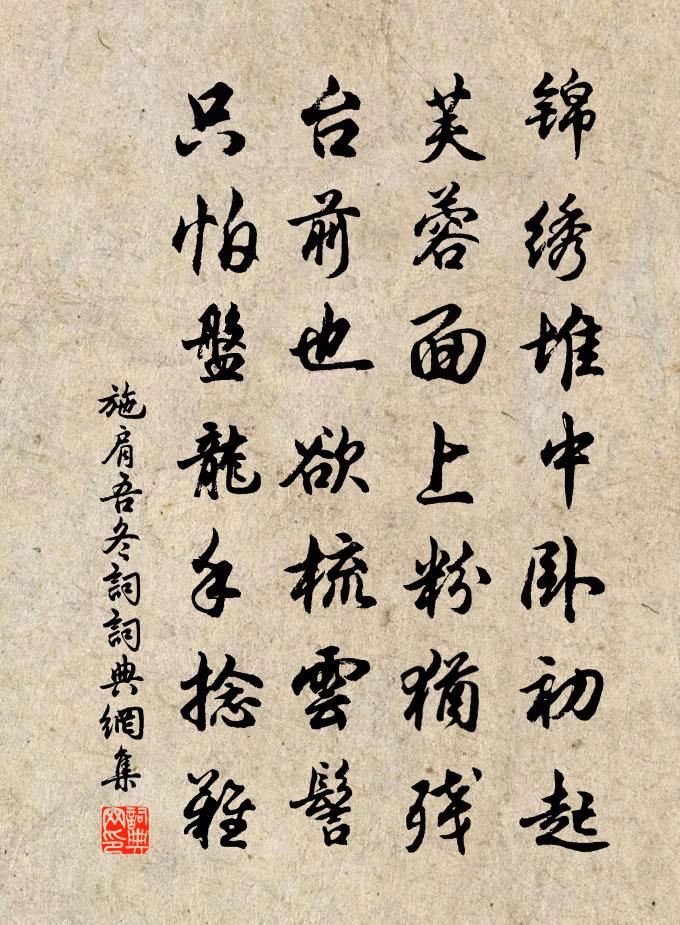 锦绣堆中卧初起
芙蓉面上粉犹残
台前也欲梳雲髻
只怕盤龍手捻難
施肩吾冬詞詞典網集
詞典网印